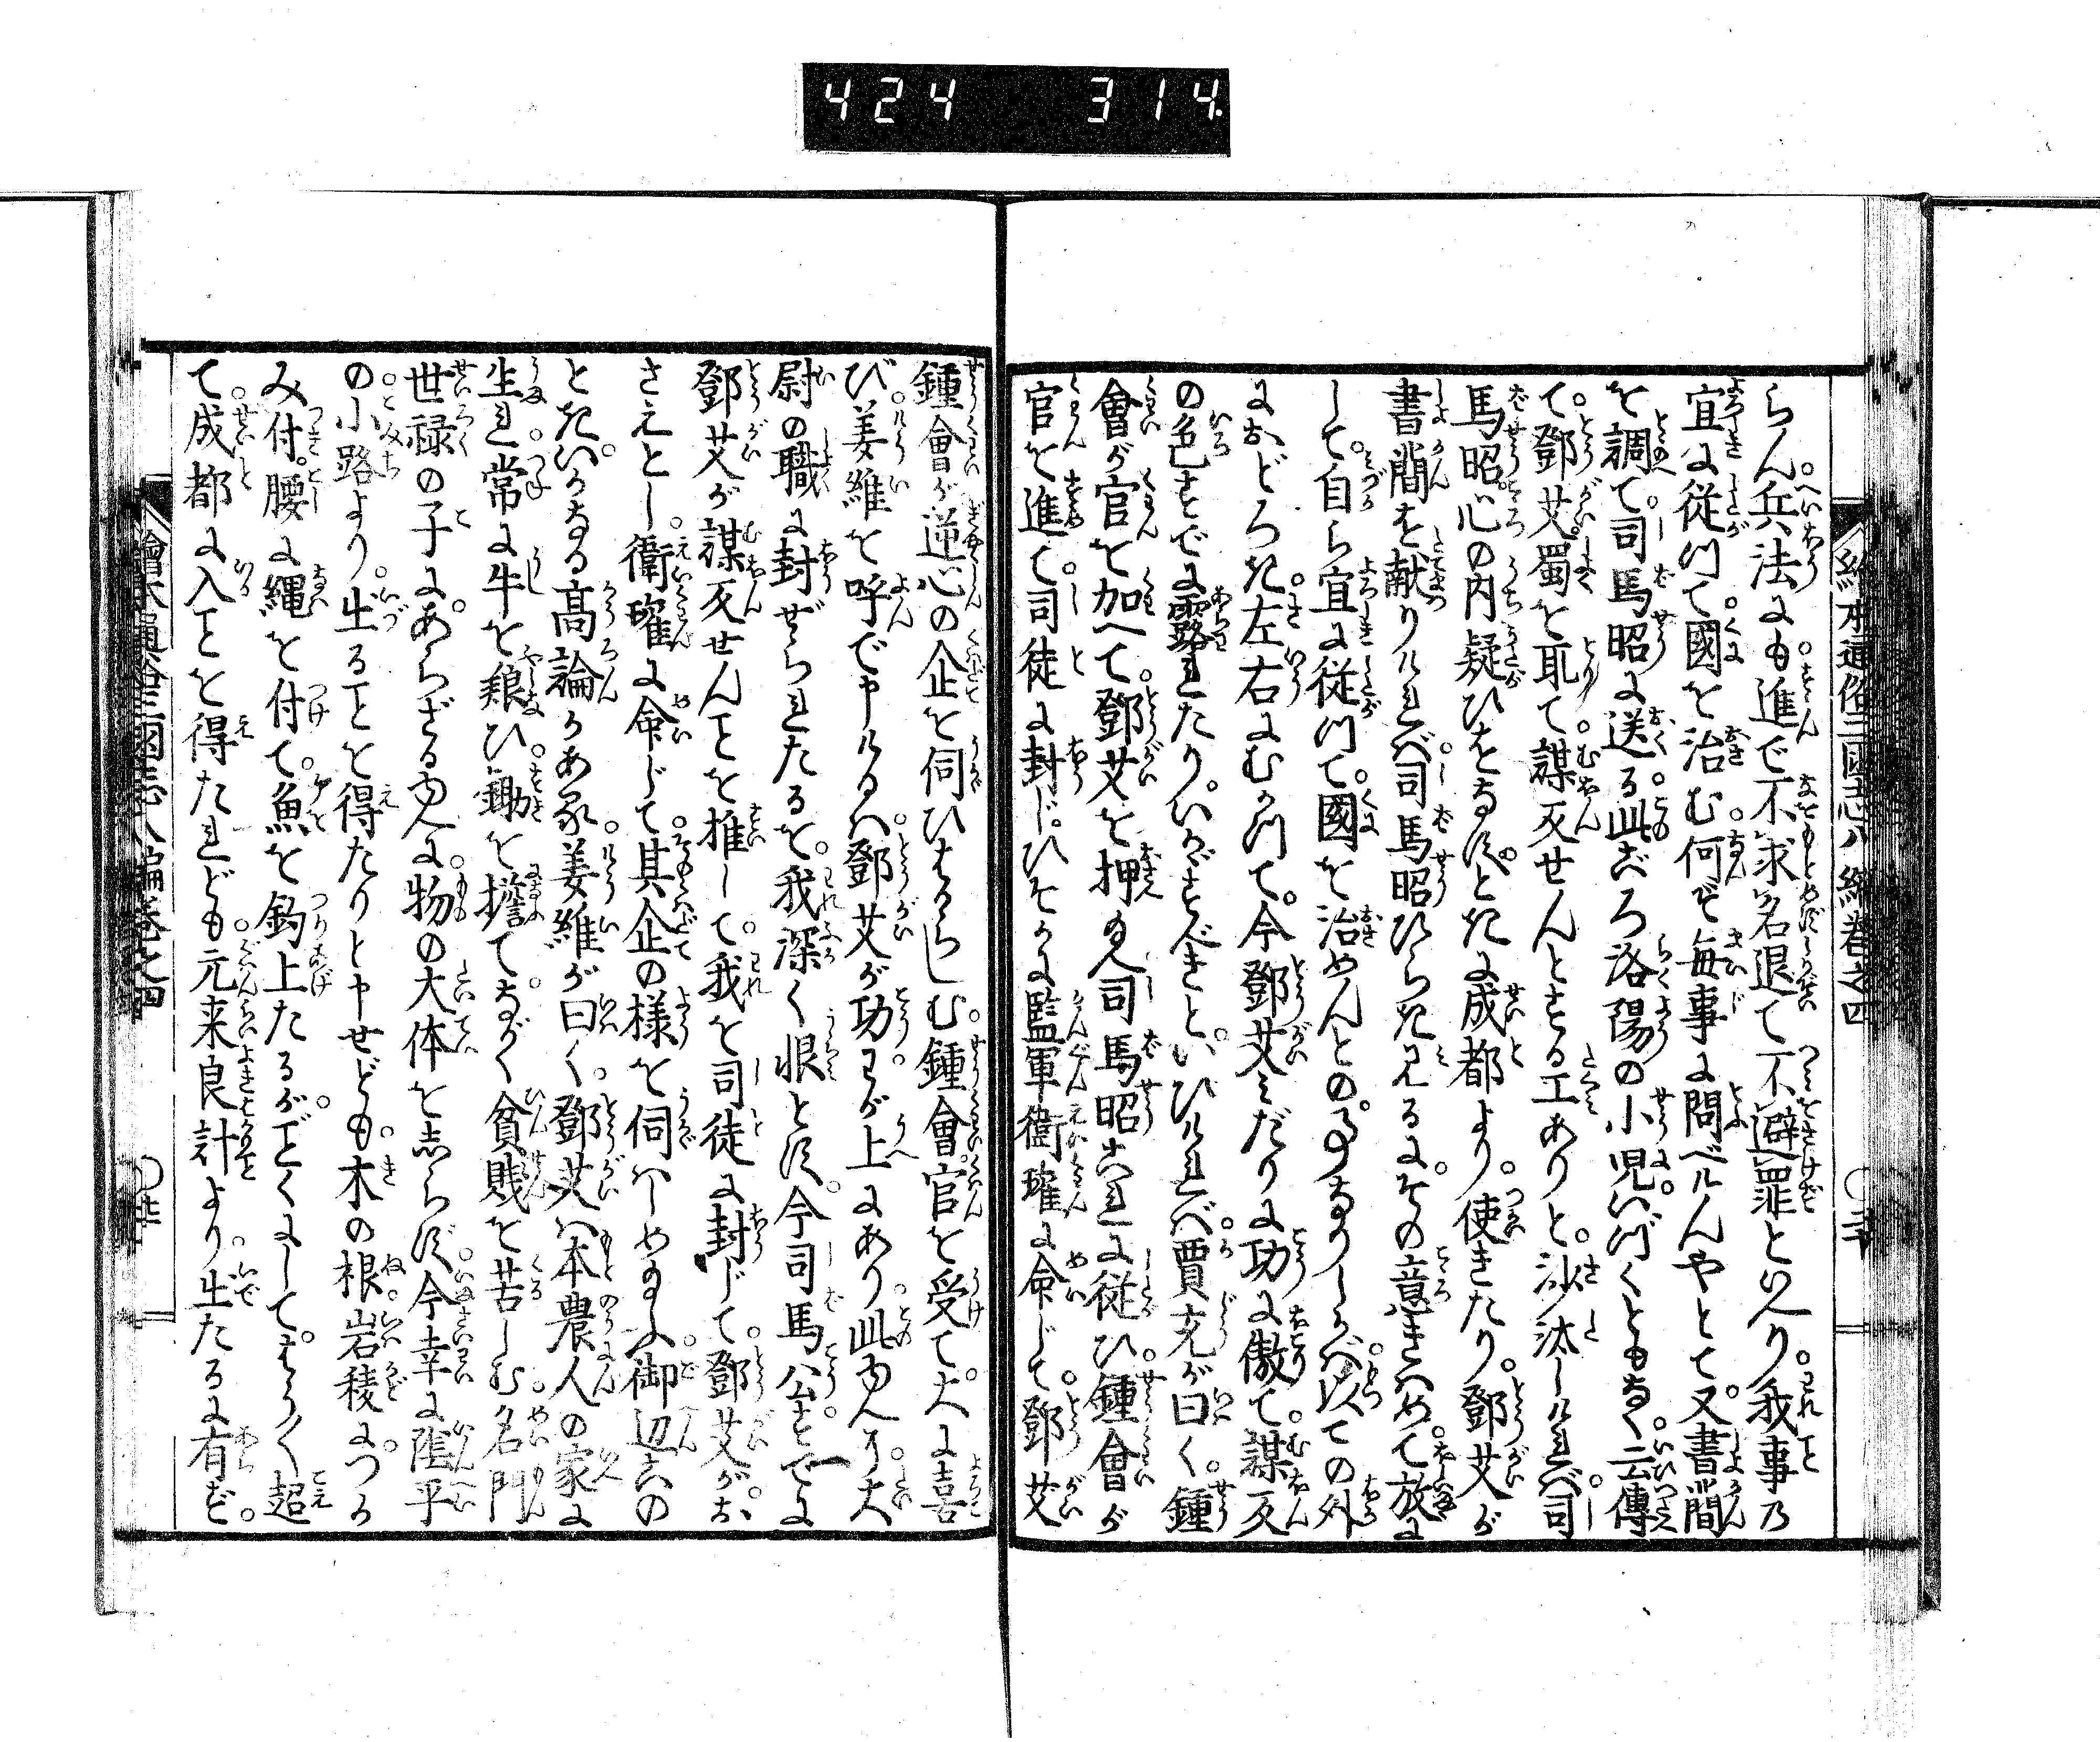 424 314.
絵本通俗三国志八編巻之四
らん。兵法にも進で不求名退て不避罪といへり。我事乃
宜に従つて。國を治む。何ぞ毎事に問べけんやとて。又書簡
を調て。司馬昭に送る。此ごろ洛陽の小児。いづくともなく。云傳
て。鄧艾。蜀を取て。謀反せんとする工ありと。沙汰しければ。司
馬昭。心の内疑ひをなす。ときに成都より。使きたり。鄧艾が
書簡を献りければ。司馬昭ひらき見るに。その意きはめて放に
して。自ら宜に従つて。國を治めんとの事なりしかば。以ての外
におどろき。左右にむかつて。今鄧艾みだりに功に傲て。謀反
の色すでに露れたり。いかゞすべきと。いひければ。賈充が曰く。鍾
會が官を加へて。鄧艾を押へ給へ。司馬昭これに従ひ。鍾會が
官を進て。司徒に封じ。ひそかに監軍衛瓘に命じて。鄧艾
鍾會が逆心の企を伺ひはからしむ。鍾會官を受て。大に喜
び。姜維を呼で申けるは。鄧艾が功。わが上にあり。此ゆへに大
尉の職に封ぜられたるを。我深く恨とす。今司馬公すでに
鄧艾が謀反せんことを推して。我を司徒に封じて。鄧艾がお
さえとし。衛瓘に命じて。其企の様を伺はしめ給ふ。御辺この
とき。いかなる高論かある。姜維が曰く。鄧艾は本農人の家に
生れ。常に牛を粮ひ。鋤を擔て。ながく貧賎を苦しむ。名門
世禄の子にあらざるゆへに。物の大体をしらず。今幸に陰平
の小路より。出ることを得たりと申せども。木の根。岩稜につる
み付。腰に縄を付て。魚を釣上たるがごとくにして。やうやく超
て。成都に入ことを得たれども。元来良計より出たるに有ず。
繪本通俗三國志八編巻之四